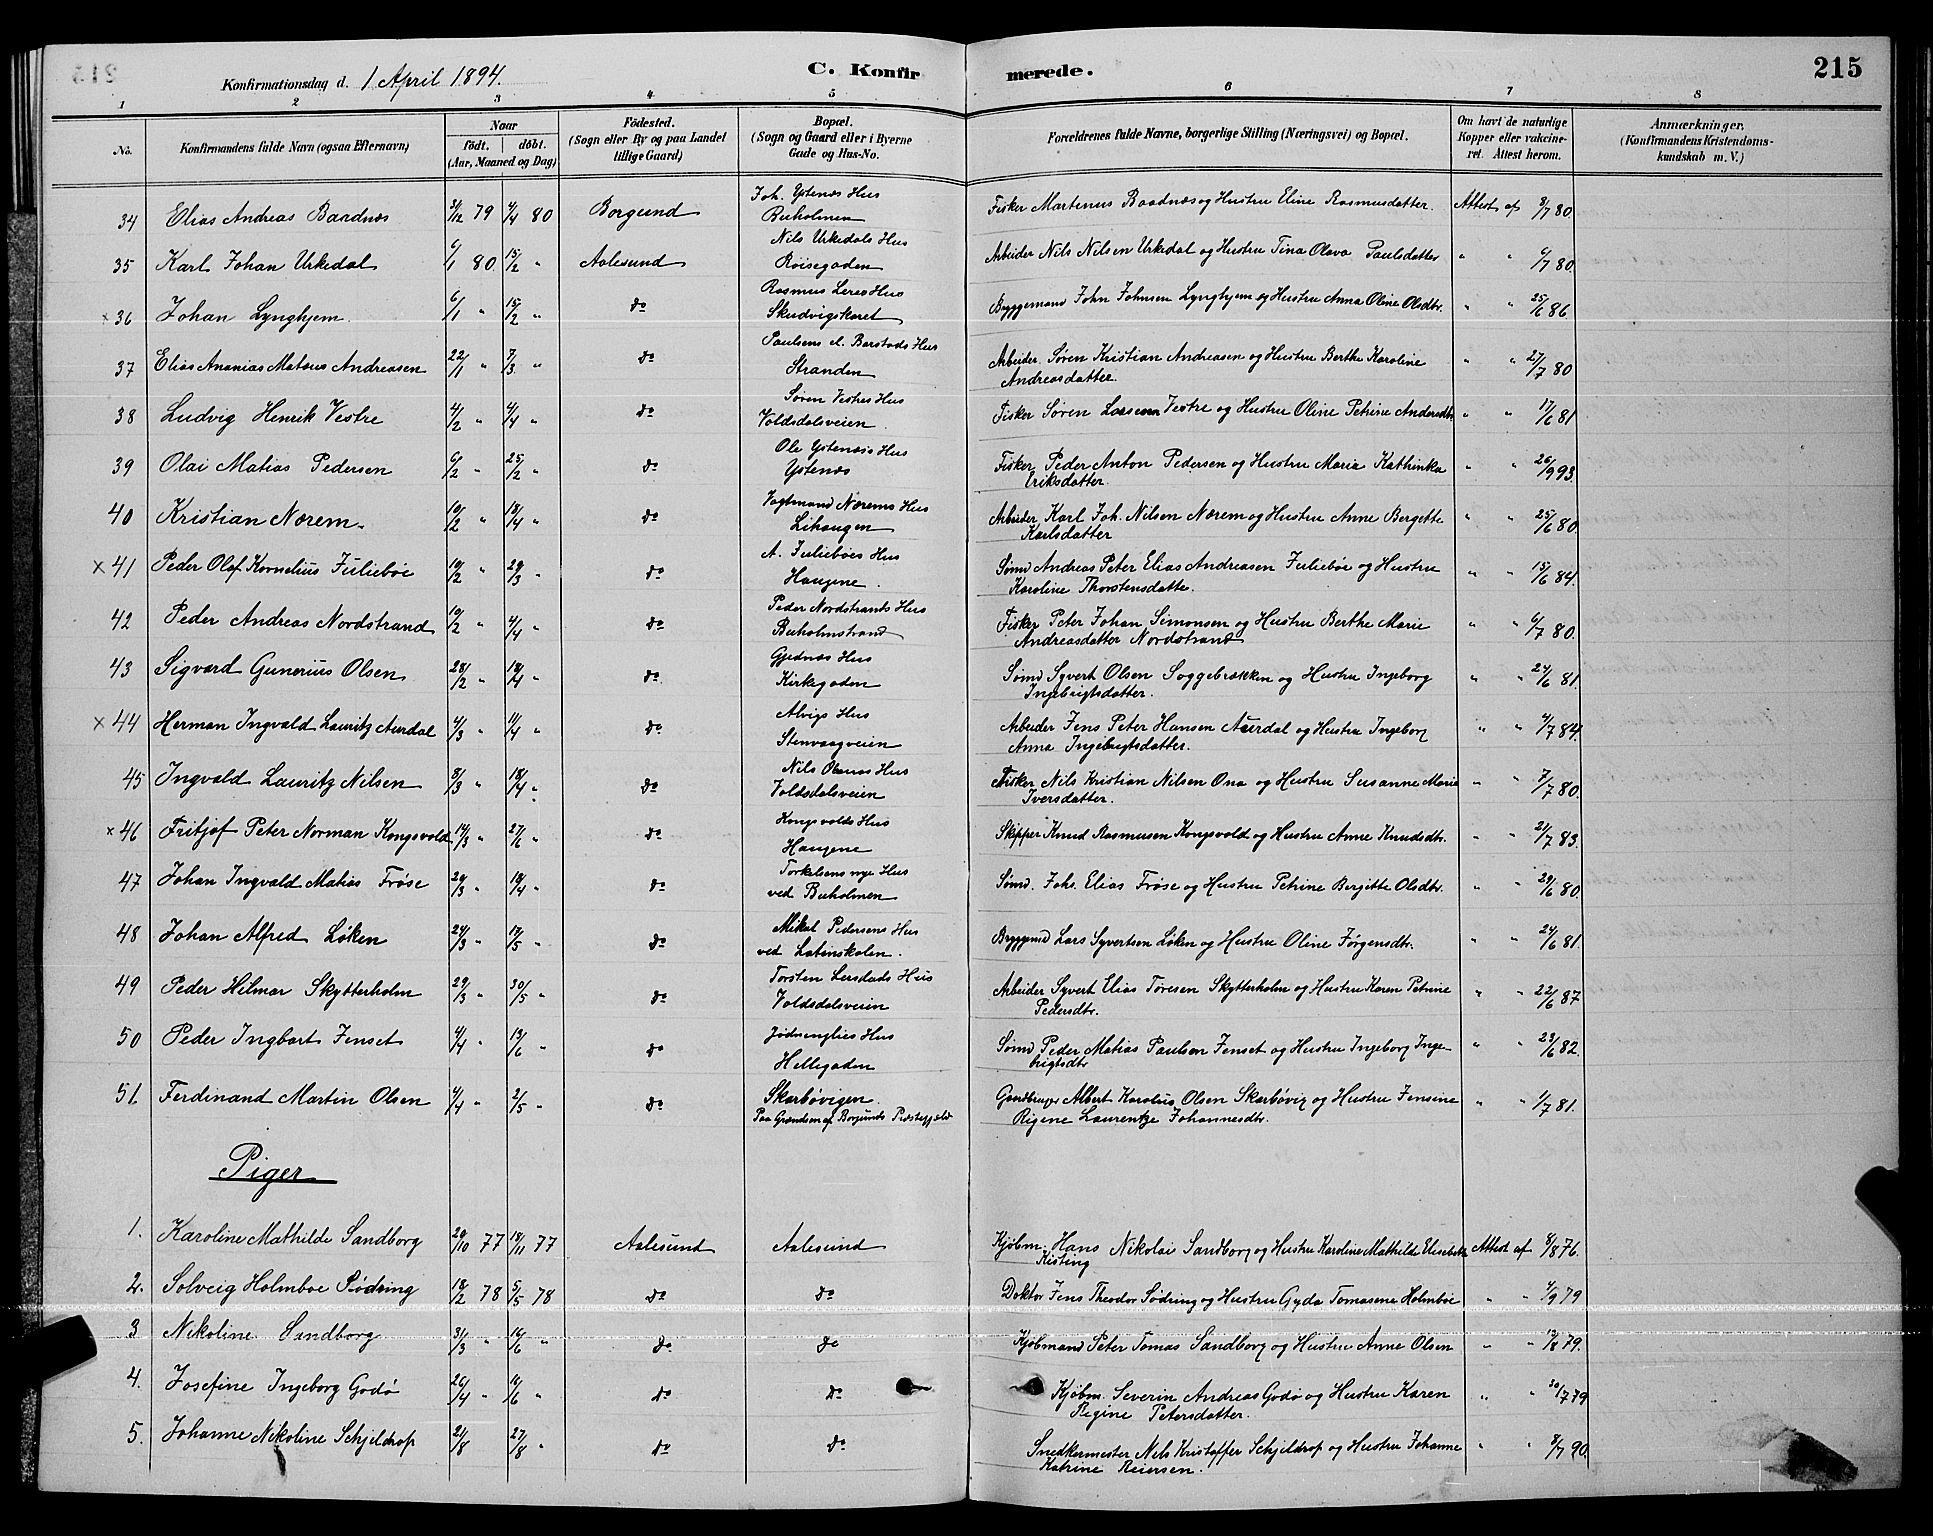 215
Konfirmationsdag d. 1 April 1894.
C. Konfirmerede.
1 2 3 4 5 6 7 8
No. Konfirmandens fulde Navn (ogsaa Efternavn) Naar født. døbt. (Aar, Maaned og Dag) Fødested. (Sogn eller By og paa Landet tillige Gaard) Bopæl. (Sogn og Gaard eller i Byerne Gade og Hus-No. Forældrenes fulde Navne, borgerlige Stilling (Næringsvei) og Bopæl. Om havt de naturlige Kopper eller vakcineret. Attest herom. Anmærkninger. (Konfirmandens Kristendomskundskab m. V.)
34 Elias Andreas Baadnæs 31/12 79 4/4 80 Borgund Joh. Ystenæs Hus Buholmen Fisker Martenus Baadnæs og Hustru Eline Rasmusdatter. Attest af 8/7 80.
35 Karl Johan Urkedal 6/1 80 15/2 " Aalesund Nils Urkedals Hus Røisegaden Arbeider Nils Nilsen Urkedal og Hustru Tina Olava Paulsdatter " " 6/7 80.
×36 Johan Lynghjem. 6/1 " 15/2 " do Rasmus Leres Hus Skudvigskaret Byggemand John Johnsen Lynghjem og Hustru Anna Oline Olsdtr. " " 25/6 86
37 Elias Ananias Mataus Andreasen 22/1 " 7/3 " do Paulsens el. Barstads Hus Stranden Arbeider Søren Kristian Andreasen og Hustru Berthe Karoline Andreasdatter. " " 27/7 80
38 Ludvig Henrik Vestre 4/2 " 4/4 " do Søren Vestres Hus Voldsdalsveien. Fisker Søren Larsen Vestre og Hustru Oline Petrine Andersdtr " " 17/6 81
39 Olai Matias Pedersen 6/2 " 25/2 " do Ole Ystenæs Hus Ystenæs Fisker Peder Anton Pedersen og Hustru Maria Kathinka Eriksdatter. " " 26/9 93.
40 Kristian Norem. 10/2 " 18/4 " do Vogtmand Norems Hus Lihaugen Arbeider Karl Joh. Nilsen Nærem og Hustru Anne Bergette Karlsdatter " " 25/6 80.
×41 Peder Olaf Kornelius Juliebøe 10/2 " 29/3 " do A. Juliebøes Hus Haugene. Sømd Andreas Peter Elias Andreasen Juliebøe og Hustru Karoline Thorstensdatter. " " 18/6 84.
42 Peder Andreas Nordstrand 10/2 " 4/4 " do Peder Nordstrants Hus Buholmstrand Fisker Peter Johan Simonsen og Hustru Berthe Marie Andreasdatter Nordstrand " " 6/7 80.
43 Sigvard Gunerius Olsen 28/2 " 18/4 " do Gjednæs Hus Kirkegaden Sømd Syvert Olsen Soggebrækken og Hustru Ingeborg Ingebrigtsdatter. " " 24/6 81.
×44 Herman Ingvald Lauritz Aurdal 4/3 " 11/4 " do Alvigs Hus Stenvaagveien Arbeider Jens Peter Hansen Aurdal og Hustru Ingeborg Anna Ingebrigtsdatter. " " 4/7 84.
45 Ingvald Lauritz Nilsen 8/3 " 18/4 " do Nils Onas Hus Voldsdalsveien Fisker Nils Kristian Nilsen Ona og Hustru Susanne Marie Iversdatter. " " 7/7 80.
×46 Fritjof Peter Norman Kongsvold 14/3 " 27/6 " do Kongsvolds Hus Haugene Skipper Knud Rasmusen Kongsvold og Hustru Anne Knudsdtr. " " 21/7 83.
47 Johan Ingvald Matias Frøse 24/3 " 18/4 " do Torkelsens nye Hus ved Buholmen Sømd. Johs. Elias Frøse og Hustru Petrine Bergitte Olsdtr. " " 29/6 80.
48 Johan Alfred Løken 24/3 " 17/5 " do Mikal Pedersens Hus ved Latinskolen. Byggemd Lars Syvertsen Løken og Hustru Oline Jørgensdtr. " " 24/6 81.
49 Peder Hilmar Skytterholm 29/3 " 30/5 " do Torsten Lersdads Hus Voldsdalsveien Arbeider Syvert Elias Toresen Skytterholm og Hustru Karen Petrine Pedersdtr. " " 22/6 87
50 Peder Ingbart Jenset 4/4 " 13/6 " do Hus Hellegaden Sømd Peder Matias Paulsen Jenset og Hustru Ingeborg Ingebrigtsdtr " " 23/6 82.
51. Ferdinand Martin Olsen 4/4 " 2/5 " do Skarbøvigen. Paa Grændsen af Borgunds Præstegjeld Gaardbruger Albert Karolius Olsen Skarbøvig og Hustru Jensine Rigine Laurentze Johannesdtr. " " 1/7 81.
Piger
1. Karoline Mathilde Sandborg 29/10 77 18/11 77 Aalesund Aalesund Kjøbm. Hans Nikolai Sandborg og Hustru Karoline Mathilde Elisabeth Kisting Attest af 8/8 76.
2. Solveig Holmboe Sødring 18/2 78 5/5 78 do do Doktor Jens Theodor Sødring og Hustru Gyda Tomasene Holmboe " " 4/9 79
3 Nikoline Sandborg 31/3 " 16/6 " do do Kjøbmand Peter Tomas Sandborg og Hustru Anne Olsen " " 13/8 79.
4. Josefine Ingeborg Godø 26/4 " 16/6 " do do Kjøbm. Severin Andreas Godø og Hustru Karen Regine Petersdatter. " " 30/7 79
5. Johanne Nikoline Schjeldrop 21/8 27/8 " do do Snedkermester Nils Kristoffer Schjeldrop og Hustru Johanne Katrine Reiersen. " " 8/7 90.